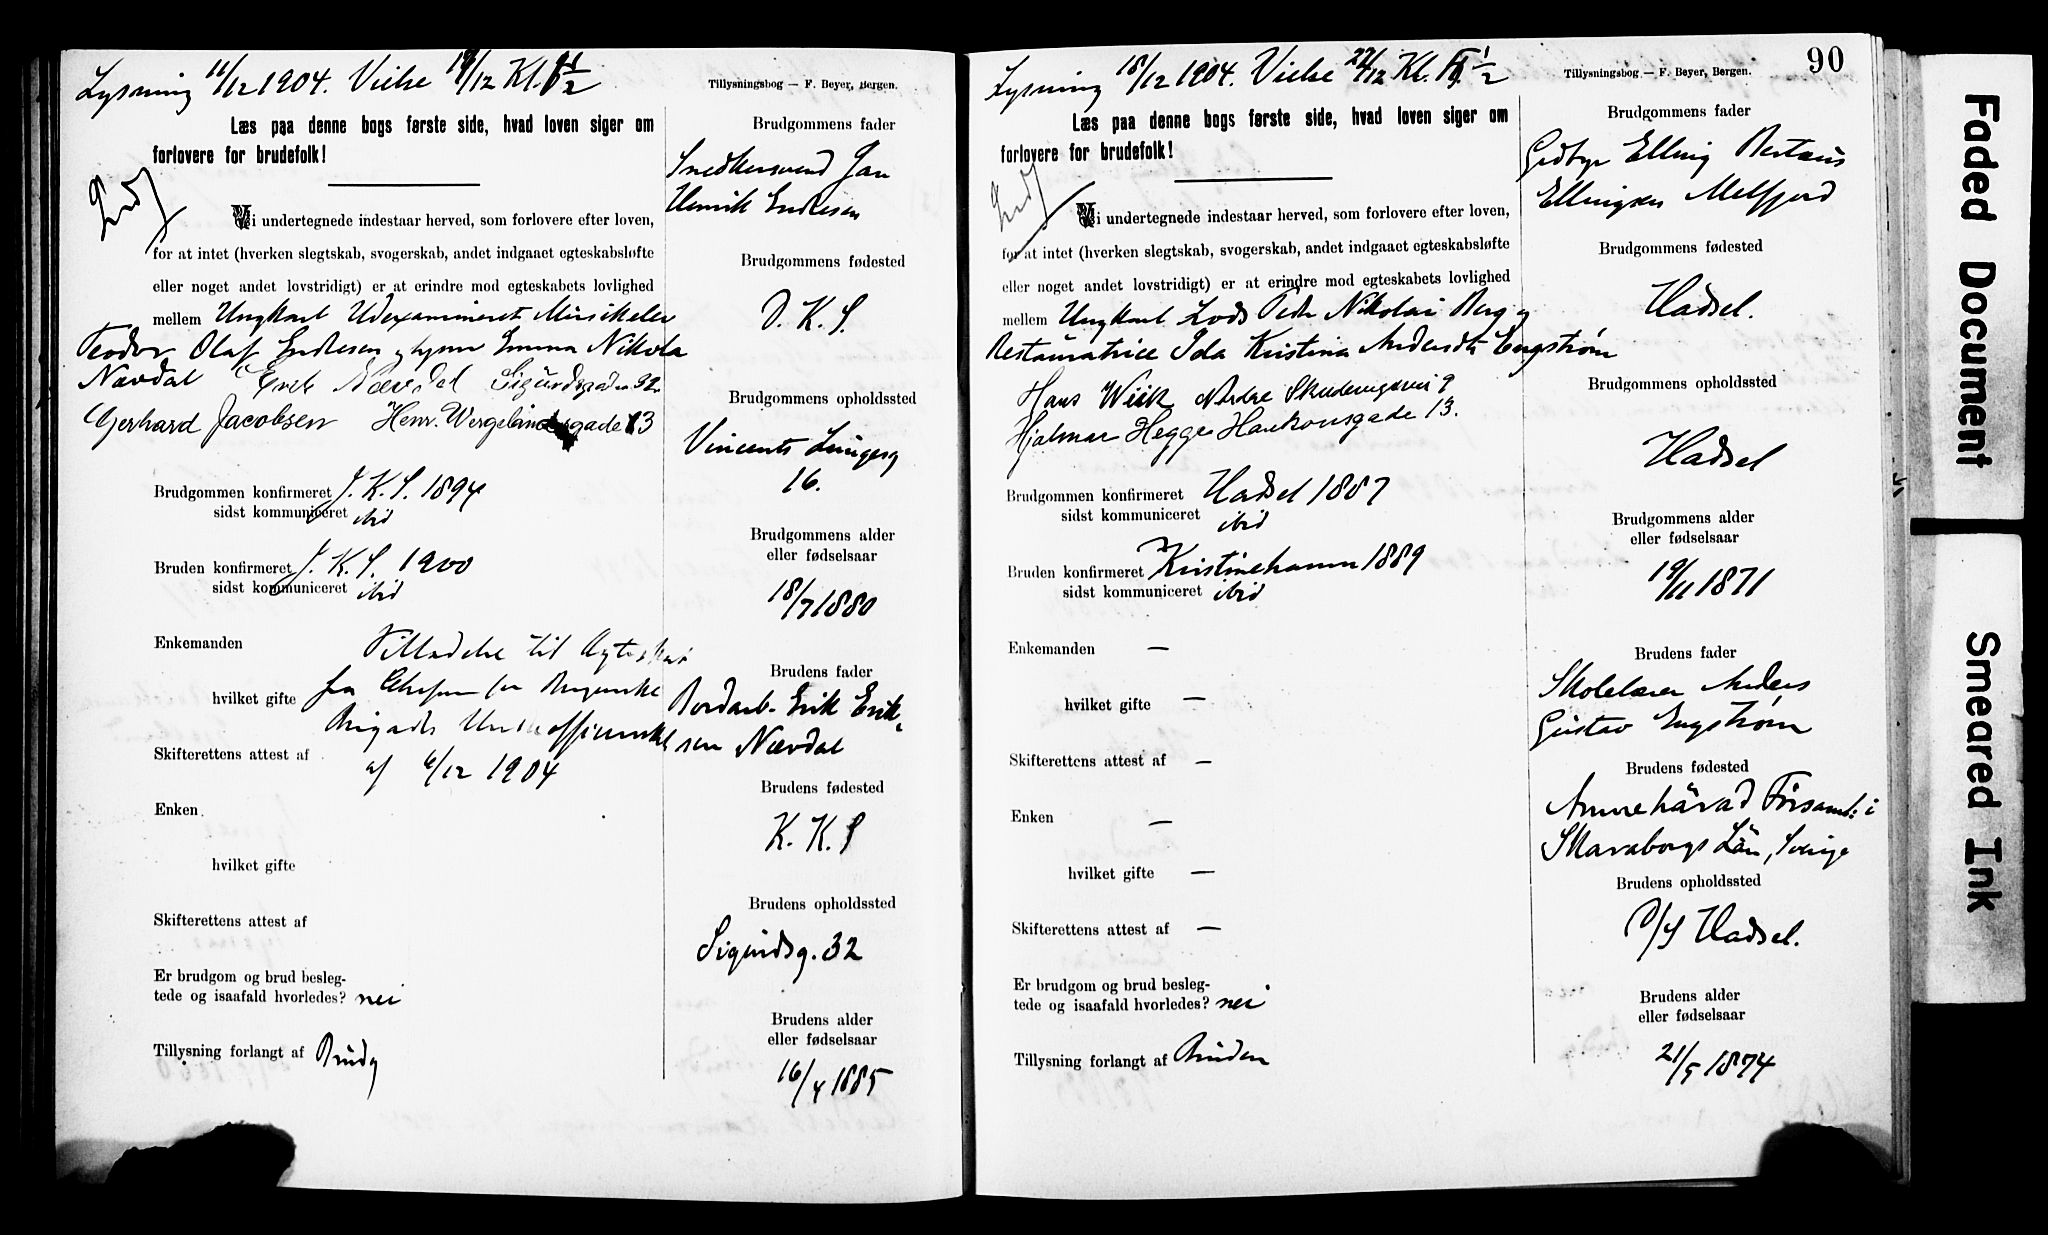 Lysning 11/12 1904. Vielse 19/12 Kl. 1/2
Tillysningsbog — F. Beyer, Bergen.
Læs paa denne bogs første side, hvad loven siger om
forlovere for brudefolk!
Vi undertegnede indestaar herved, som forlovere efter loven,
for at intet (hverken slegtskab, svogerskab, andet indgaaet egteskabsløfte
eller noget andet lovstridigt) er at erindre mod egteskabets lovlighed
mellem Ungkarl Udexamineret Musikelev
Teodor Olaf Endresen og tjpige Emma Nikola
Nævdal Erik Nævdal Sigurdsgaden 32
Gerhard Jacobsen Henr. Wergelandsgade 13
Brudgommen konfirmeret J. K. S. 1894
sidst kommuniceret ibid
Bruden konfirmeret J. K. S. 1900
sidst kommuniceret ibid
Enkemanden
Tilladelse til Ægteskab
fra Chefen for Bergenske
hvilket gifte
Brigades Underofficerskole
Skifterettens attest af
af 6/12 1904
Enken
hvilket gifte
Skifterettens attest af
Er brudgom og brud besleg-
tede og isaafald hvorledes? nei
Tillysning forlangt af Brudg
Brudgommens fader
Snedkersvend Jan
Henrik Endresen
Brudgommens fødested
D. K. S.
Brudgommens opholdssted
Vincents Lungesg
16.
Brudgommens alder
eller fødselsaar
18/7 1880
Brudens fader
Bordarb. Erik Erik-
sen Nævdal
Brudens fødested
K. K. S
Brudens opholdssted
Sigurdsg. 32
Brudens alder
eller fødselsaar
16/4 1885
Lysning 18/12 1904. Vielse 27/12 Kl. 1/2
Tillysningsbog — F. Beyer, Bergen.
90
Læs paa denne bogs første side, hvad loven siger om
forlovere for brudefolk!
Vi undertegnede indestaar herved, som forlovere efter loven,
for at intet (hverken slegtskab, svogerskab, andet indgaaet egteskabsløfte
eller noget andet lovstridigt) er at erindre mod egteskabets lovlighed
mellem Ungkarl Lods Peter Nikolai Berg og
Restauratrice Ida Kristina Andersdtr Engstrøm
Hans Wiik Nordre Skudeviksvei 9
Hjalmar Hegge Haakonsgade 13.
Brudgommen konfirmeret Hadsel 1887
sidst kommuniceret ibid
Bruden konfirmeret Kristinehamn 1889
sidst kommuniceret ibid
Enkemanden —
hvilket gifte —
Skifterettens attest af —
Enken —
hvilket gifte —
Skifterettens attest af —
Er brudgom og brud besleg-
tede og isaafald hvorledes? nei
Tillysning forlangt af Bruden
Brudgommens fader
Gbr Elling Berteus
Ellingsen Melfjord
Brudgommens fødested
Hadsel.
Brudgommens opholdssted
Hadsel
Brudgommens alder
eller fødselsaar
19/11 1871
Brudens fader
Skolelærer Anders
Gustav Engstrøm
Brudens fødested
Amnehärad Församl: i
Skaraborgs Län, Sverige
Brudens opholdssted
D/S Hadsel.
Brudens alder
eller fødselsaar
21/5 1874
Faded Document
Smeared Ink